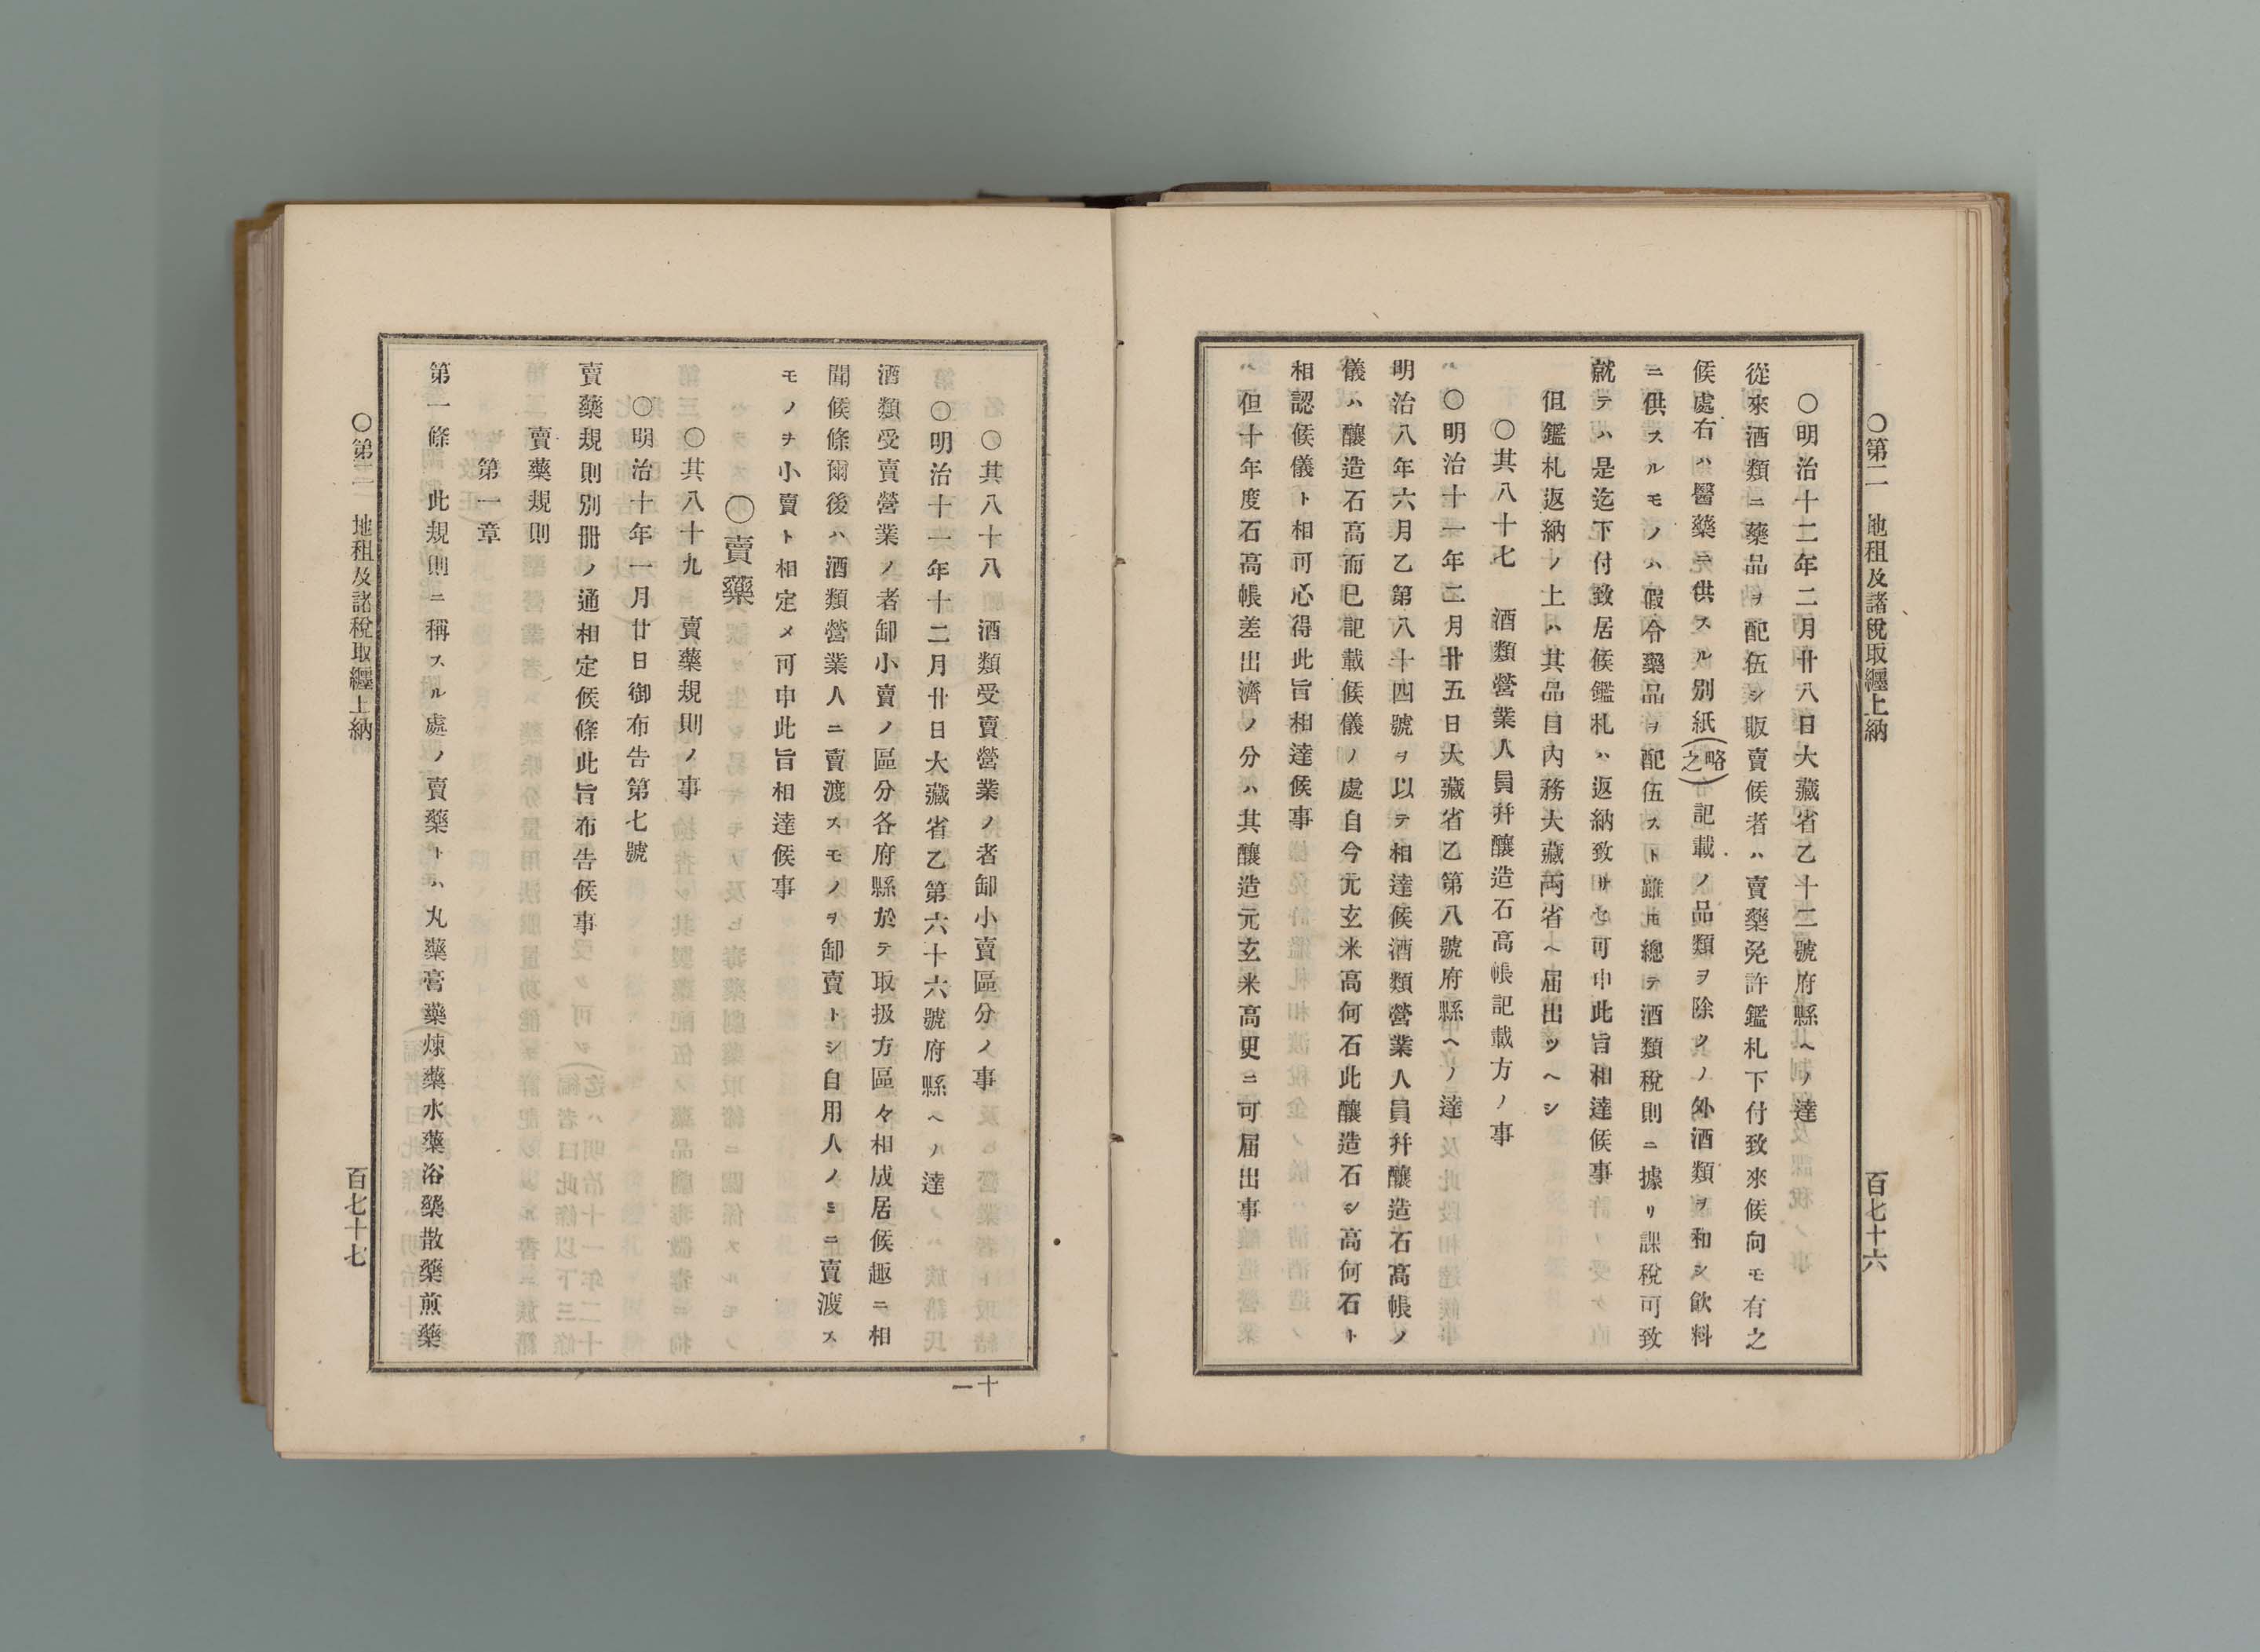 〇第二　地租及諸稅取纒上納
百七十六
〇明治十二年二月廿八日大藏省乙十二號府縣ヘノ達
從來酒類ニ藥品ヲ配伍シ販賣候者ハ賣藥免許鑑札下付致來候向モ有之
候處右ハ醫藥ニ供スル別紙(略之)記載ノ品類ヲ除クノ外酒類ヲ和シ飮料
ニ供スルモノハ假令藥品ヲ配伍スト雖𪜈總テ酒類稅則ニ據リ課稅可致
就テハ是迄下付致居候鑑札ハ返納致サセ可申此旨相達候事
但鑑札返納ノ上ハ其品目內務大藏兩省ヘ届出ツヘシ
〇其八十七　酒類營業人員幷釀造石高帳記載方ノ事
〇明治十一年二月廿五日大藏省乙第八號府縣ヘノ達
明治八年六月乙第八十四號ヲ以テ相達候酒類營業人員幷釀造石高帳ノ
儀ハ釀造石高而已記載候儀ノ處自今元玄米高何石此釀造石シ高何石ト
相認候儀ト相可心得此旨相達候事
但十年度石高帳差出濟ノ分ハ其釀造元玄米高更ニ可届出事
〇其八十八　酒類受賣營業ノ者卸小賣區分ノ事
〇明治十一年十二月廿日大藏省乙第六十六號府縣ヘノ達
酒類受賣營業ノ者卸小賣ノ區分各府縣於テ取扱方區々相成居候趣ニ相
聞候條爾後ハ酒類營業人ニ賣渡スモノヲ卸賣トシ自用人ノミニ賣渡ス
モノヲ小賣ト相定メ可申此旨相達候事
〇賣藥
〇其八十九　賣藥規則ノ事
〇明治十年一月廿日御布告第七號
賣藥規則別冊ノ通相定候條此旨布告候事
賣藥規則
第一章
第一條　此規則ニ稱スル處ノ賣藥トハ丸藥膏藥煉藥水藥浴藥散藥煎藥
〇第二　地租及諸稅取纒上納
百七十七
十一